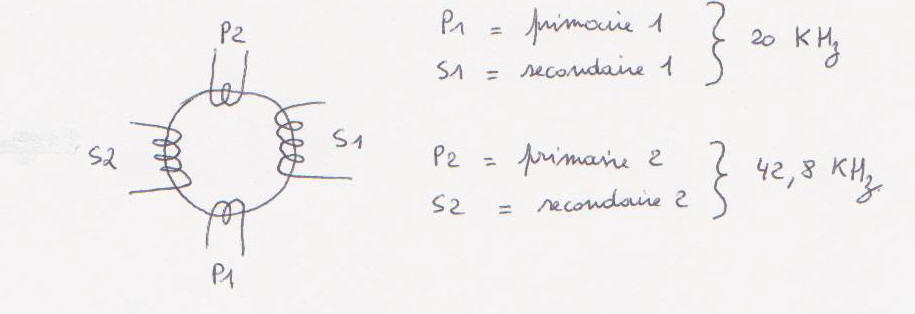 P2
S2
S1
P1
P1 = primaire 1
S1 = secondaire 1
20 KHz
P2 = primaire 2
S2 = secondaire 2
42,8 KHz